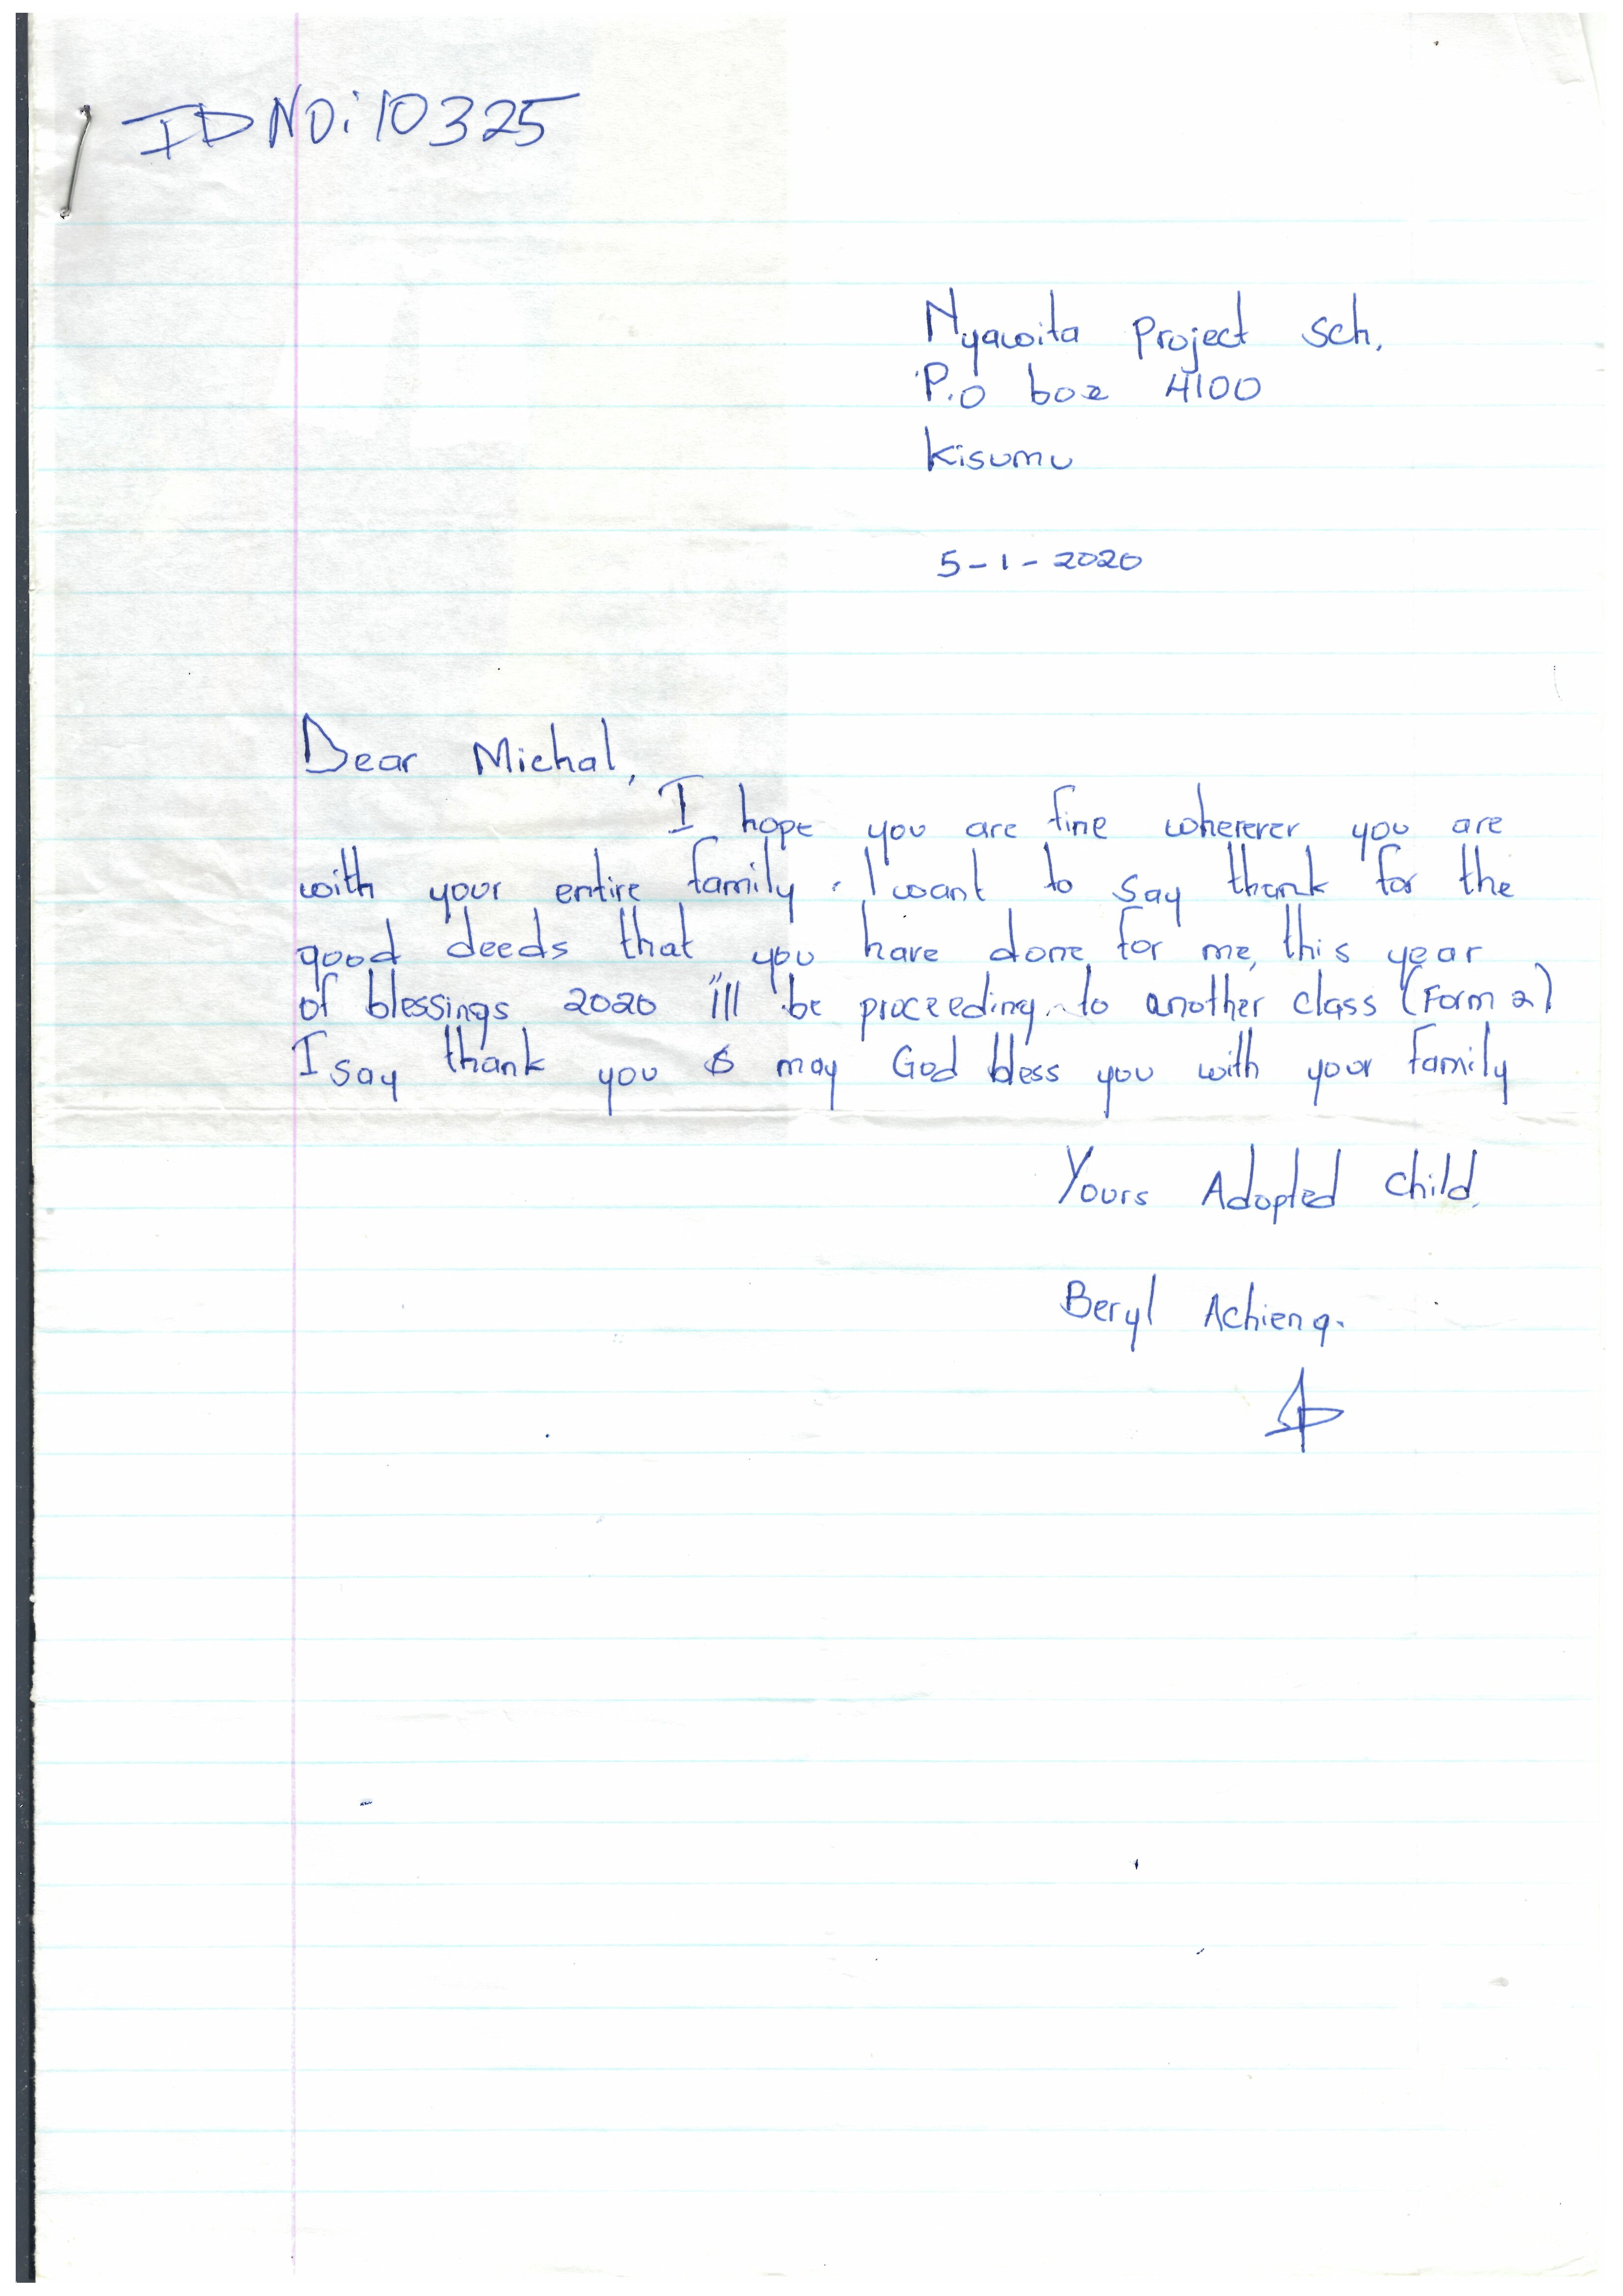 ID NO: 10325
Nyawita Project Sch.
P.O box 4100
Kisumu
5-1-2020
Dear Michal,
I hope you are fine wherever you are
with your entire family. I want to say thank for the
good deeds that you have done for me, this year
of blessings 2020 i'll be proceeding to another class (Form 2)
I say thank you & may God bless you with your family
Yours Adopted child.
Beryl Achieng.